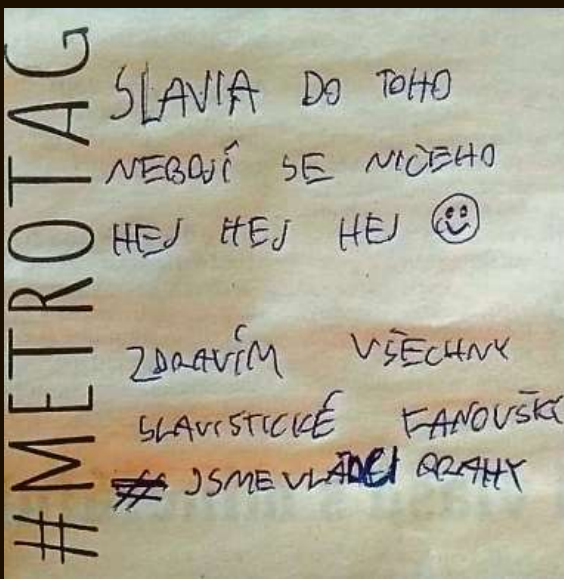 #METROTAG
SLAVIA DO TOHO
NEBOJÍ SE NIČEHO
HEJ HEJ HEJ
ZDRAVÍM VŠECHNY
SLAVISTICKÉ FANOUŠKY
# JSME VLÁDCI PRAHY